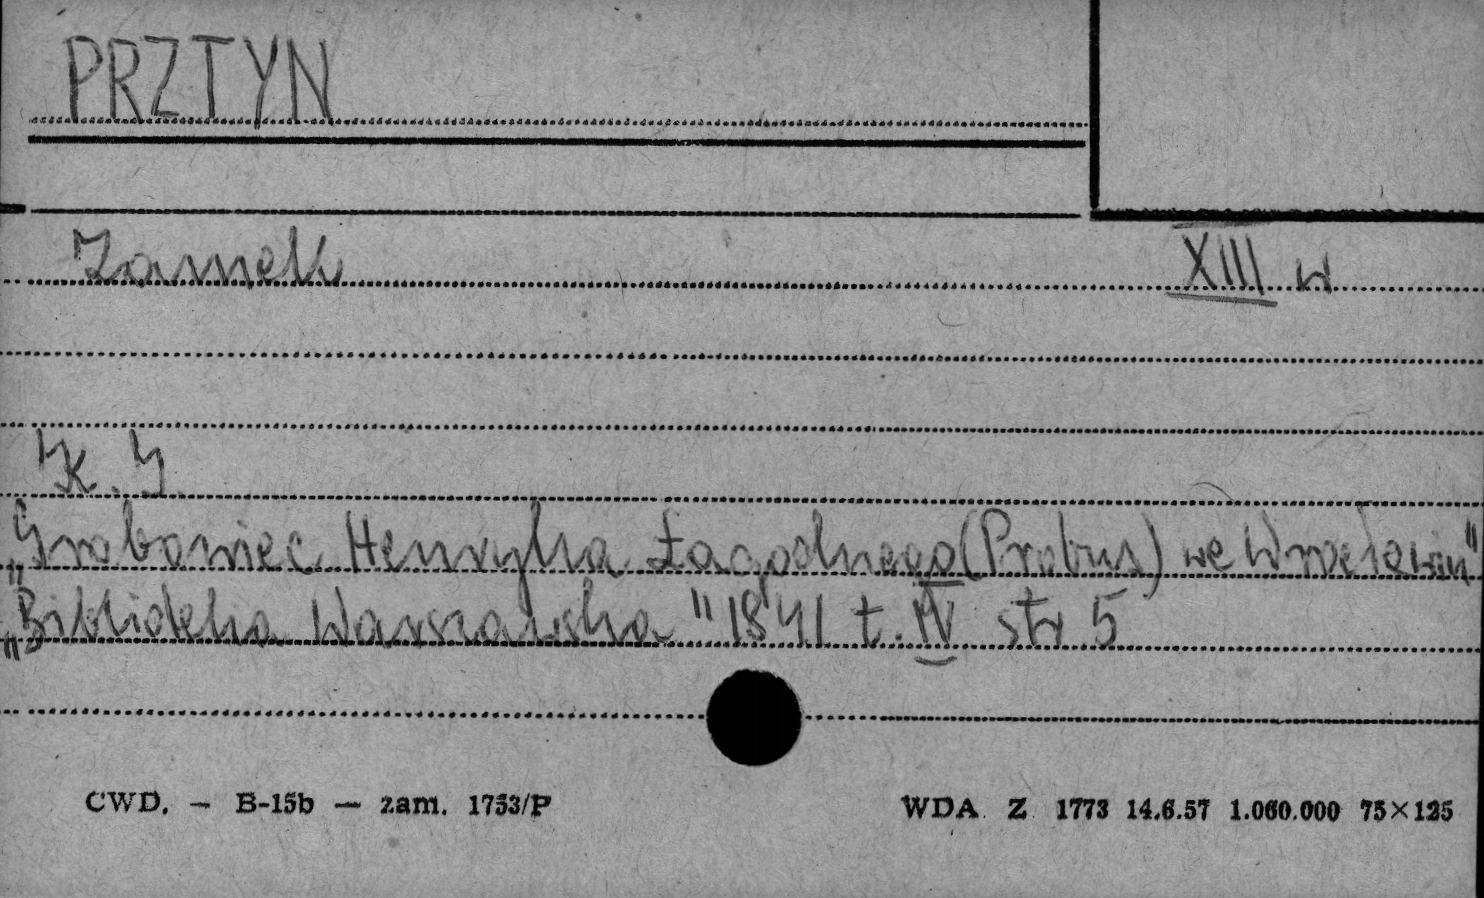 PRZTYN
Zamek XIII w
K. G.
„Grobowiec Henryka Łagodnego (Probus) we Wrocławiu"
„Biblioteka Warszawska" 1841 t. IV str 5
CWD. — B-15b — zam. 1753/P WDA Z 1773 14.6.57 1.060.000 75×125